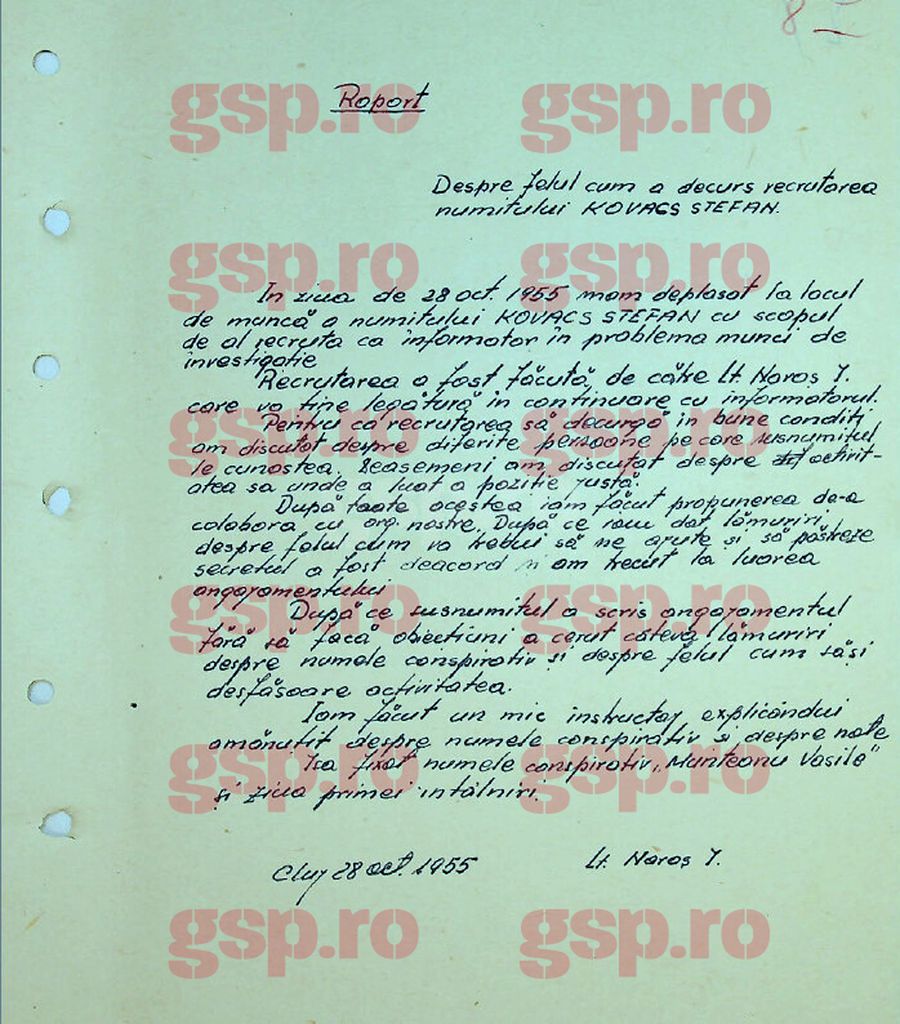 8
Raport
Despre felul cum a decurs recrutarea
numitului KOVACS STEFAN.
In ziua de 28 oct. 1955 mam deplasat la locul
de muncă a numitului KOVACS STEFAN cu scopul
de al recruta ca informator în problema munci de
investigatie
Recrutarea a fost făcută de către Lt. Naroș I.
care va ține legătură în continuare cu informatorul.
Pentru ca recrutarea să decurgă în bune condiți
am discutat despre diferite persoane pe care susnumitul
le cunostea. Deasemeni am discutat despre activit-
atea sa unde a luat a poziție justă.
După toate acestea iam făcut propunerea de-a
colabora cu org. nostre. După ce iau dat lămuriri
despre felul cum va trebui să ne ajute și să păstreze
secretul a fost deacord am trecut la luarea
angajamentului
După ce susnumitul a scris angajamentul
fără să facă obiectiuni a cerut câteva lămuriri
despre numele conspirativ și despre felul cum săși
desfășoare activitatea.
Iam făcut un mic instructaj explicândui
amănutit despre numele conspirativ si despre note
Isa fixat numele conspirativ „Munteanu Vasile"
și ziua primei intâlniri.
Cluj 28 oct. 1955
Lt. Naroș I.
gsp.ro gsp.ro
gsp.ro gsp.ro
gsp.ro gsp.ro
gsp.ro gsp.ro
gsp.ro gsp.ro
gsp.ro gsp.ro